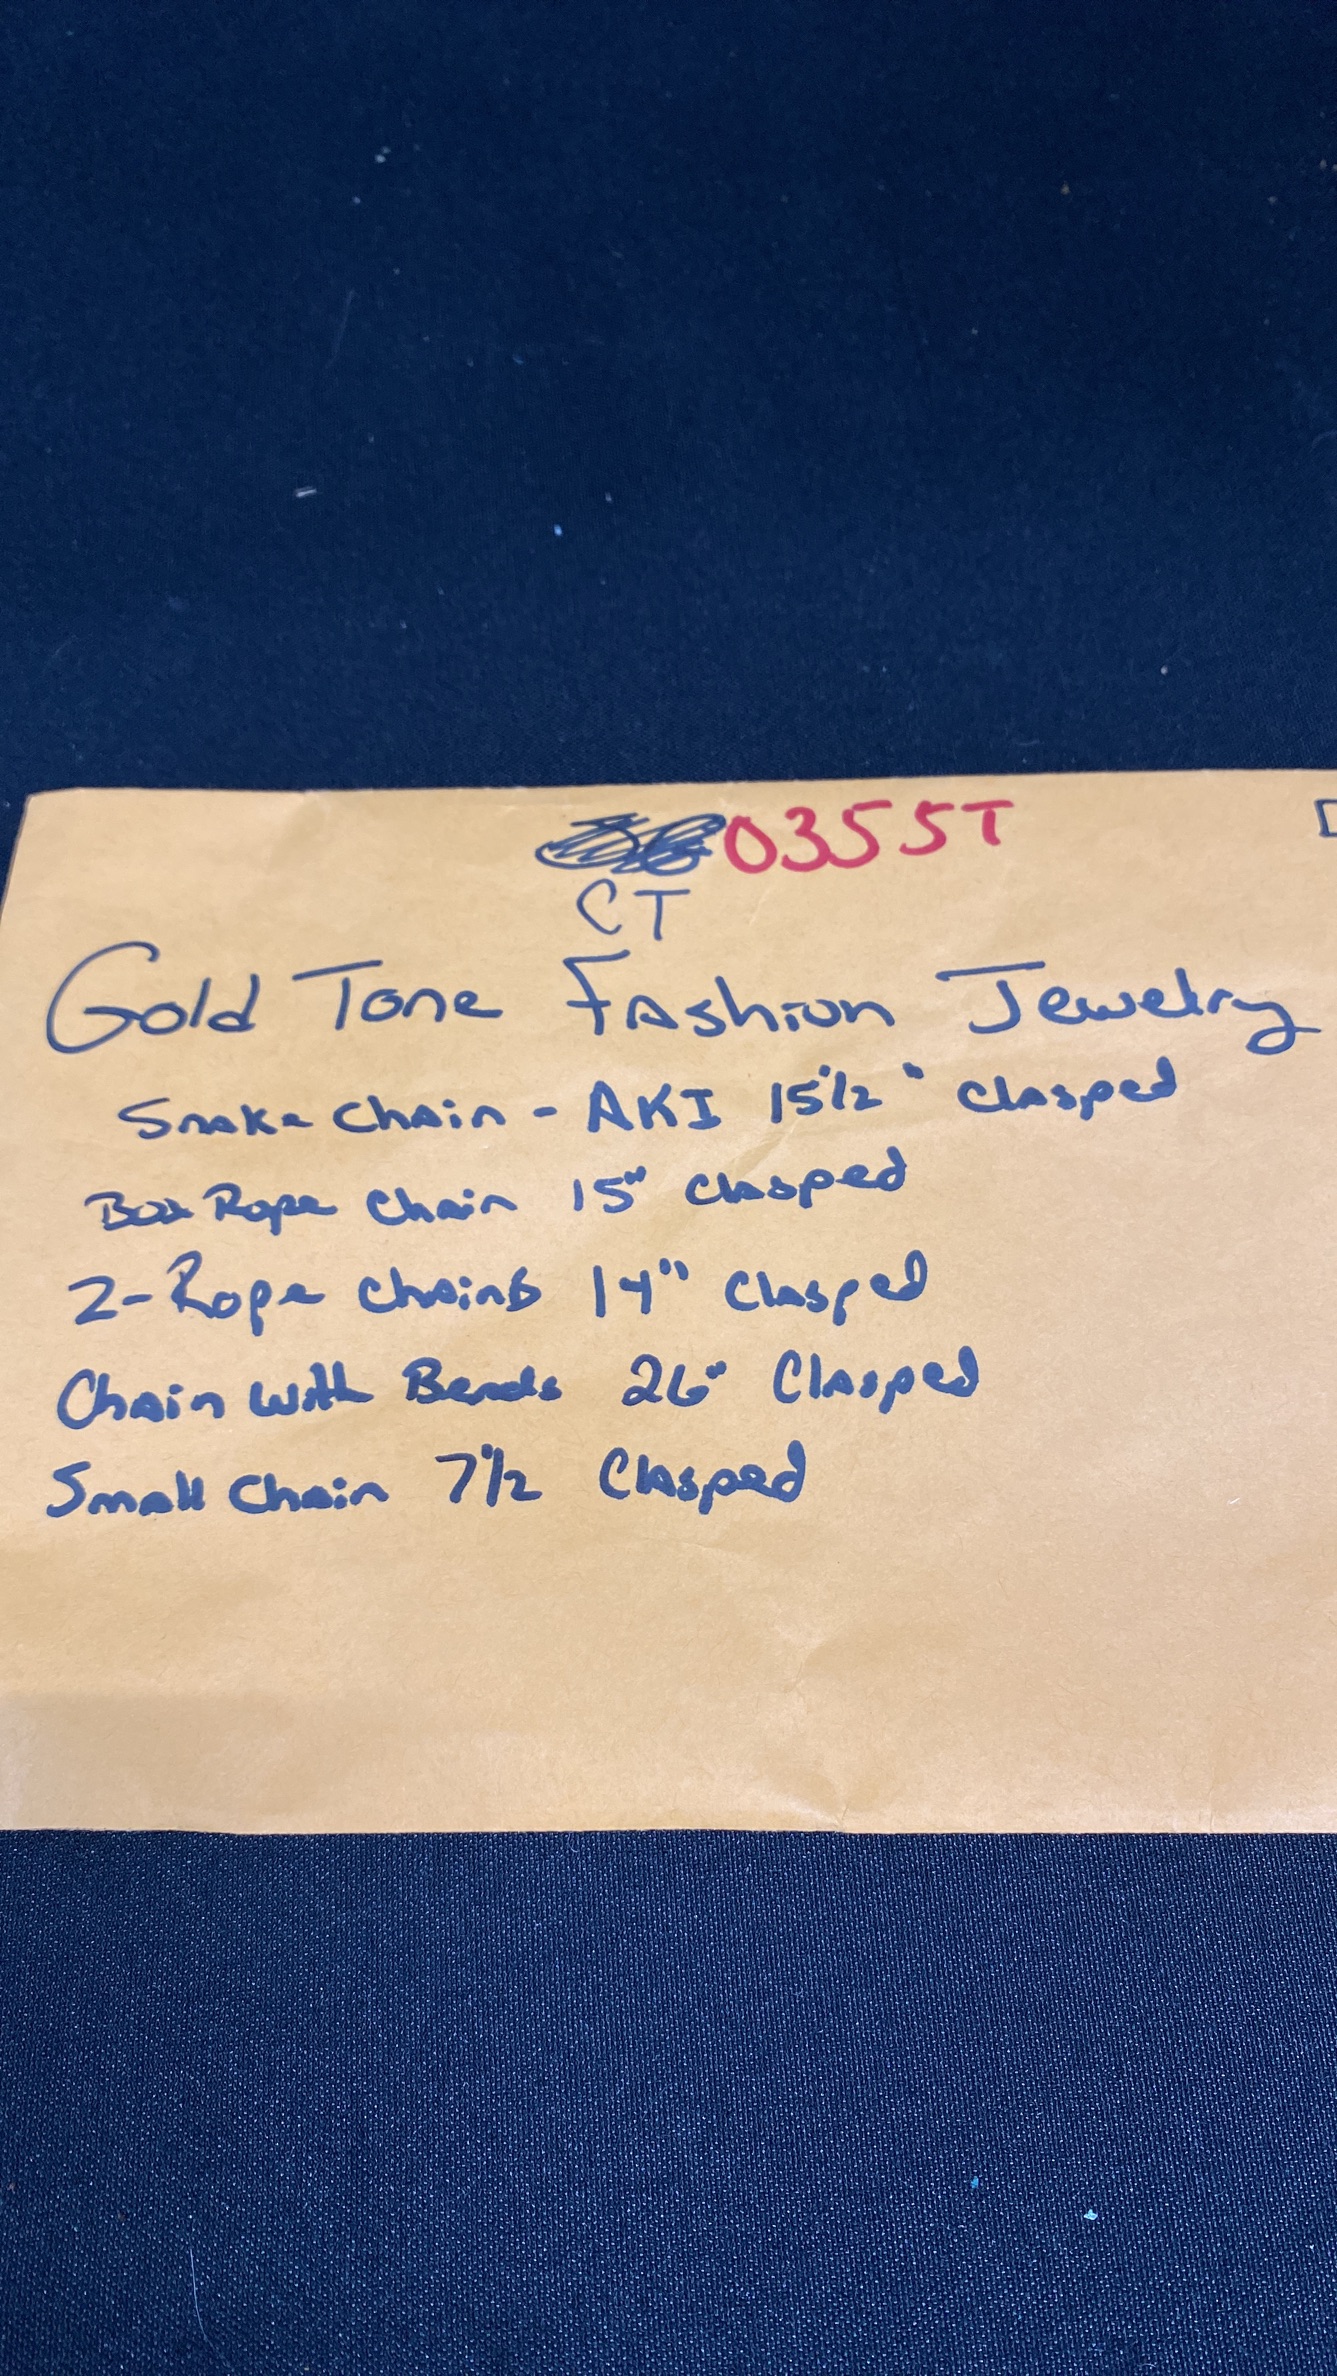 0355T
CT
Gold Tone Fashion Jewelry
Snake Chain - AKI 15 1/2" Clasped
Box Rope Chain 15" Clasped
2-Rope Chains 14" Clasped
Chain with Beads 26" Clasped
Small Chain 7 1/2 Clasped